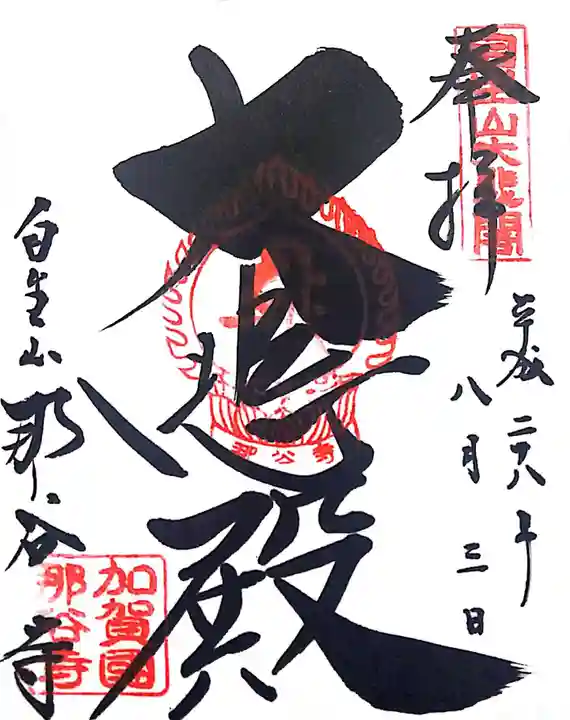 奉拝
自生山大悲閣
平成二十八年
八月三日
大悲殿
那谷寺
自生山那谷寺
加賀國
那谷寺